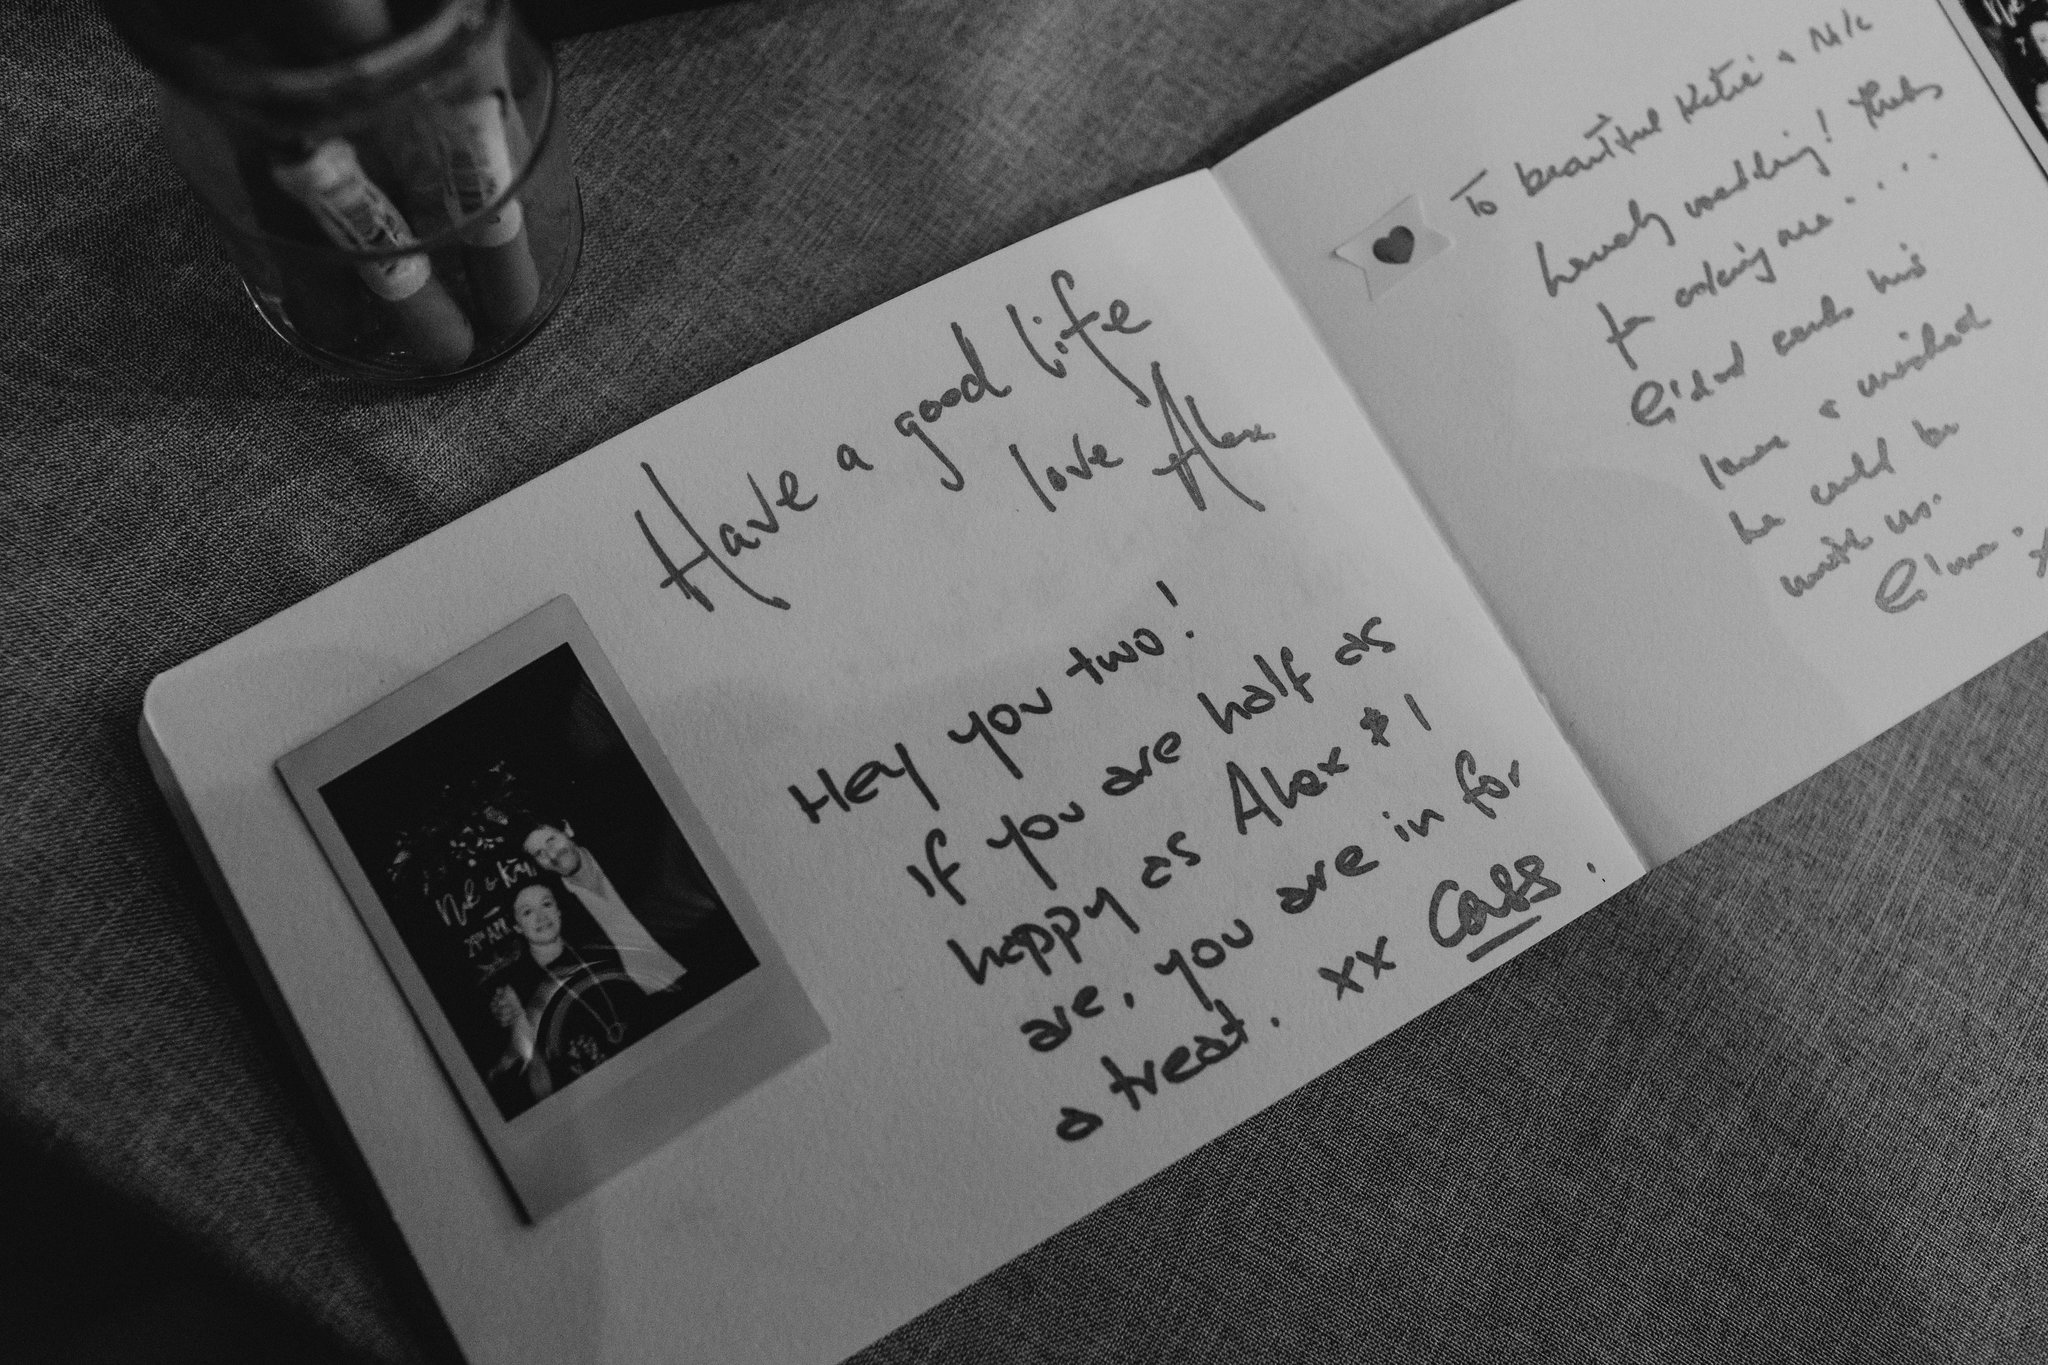 Have a good life
love Alex
Hey you two!
If you are half as
happy as Alex & I
are, you are in for
a treat. xx Cass.
To beautiful Katie & Nic
Lovely wedding! Thks
for asking me....
love &
he could be
with us.